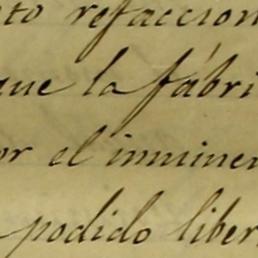 to refaccion
que la fábri
or el inminen
podido liber